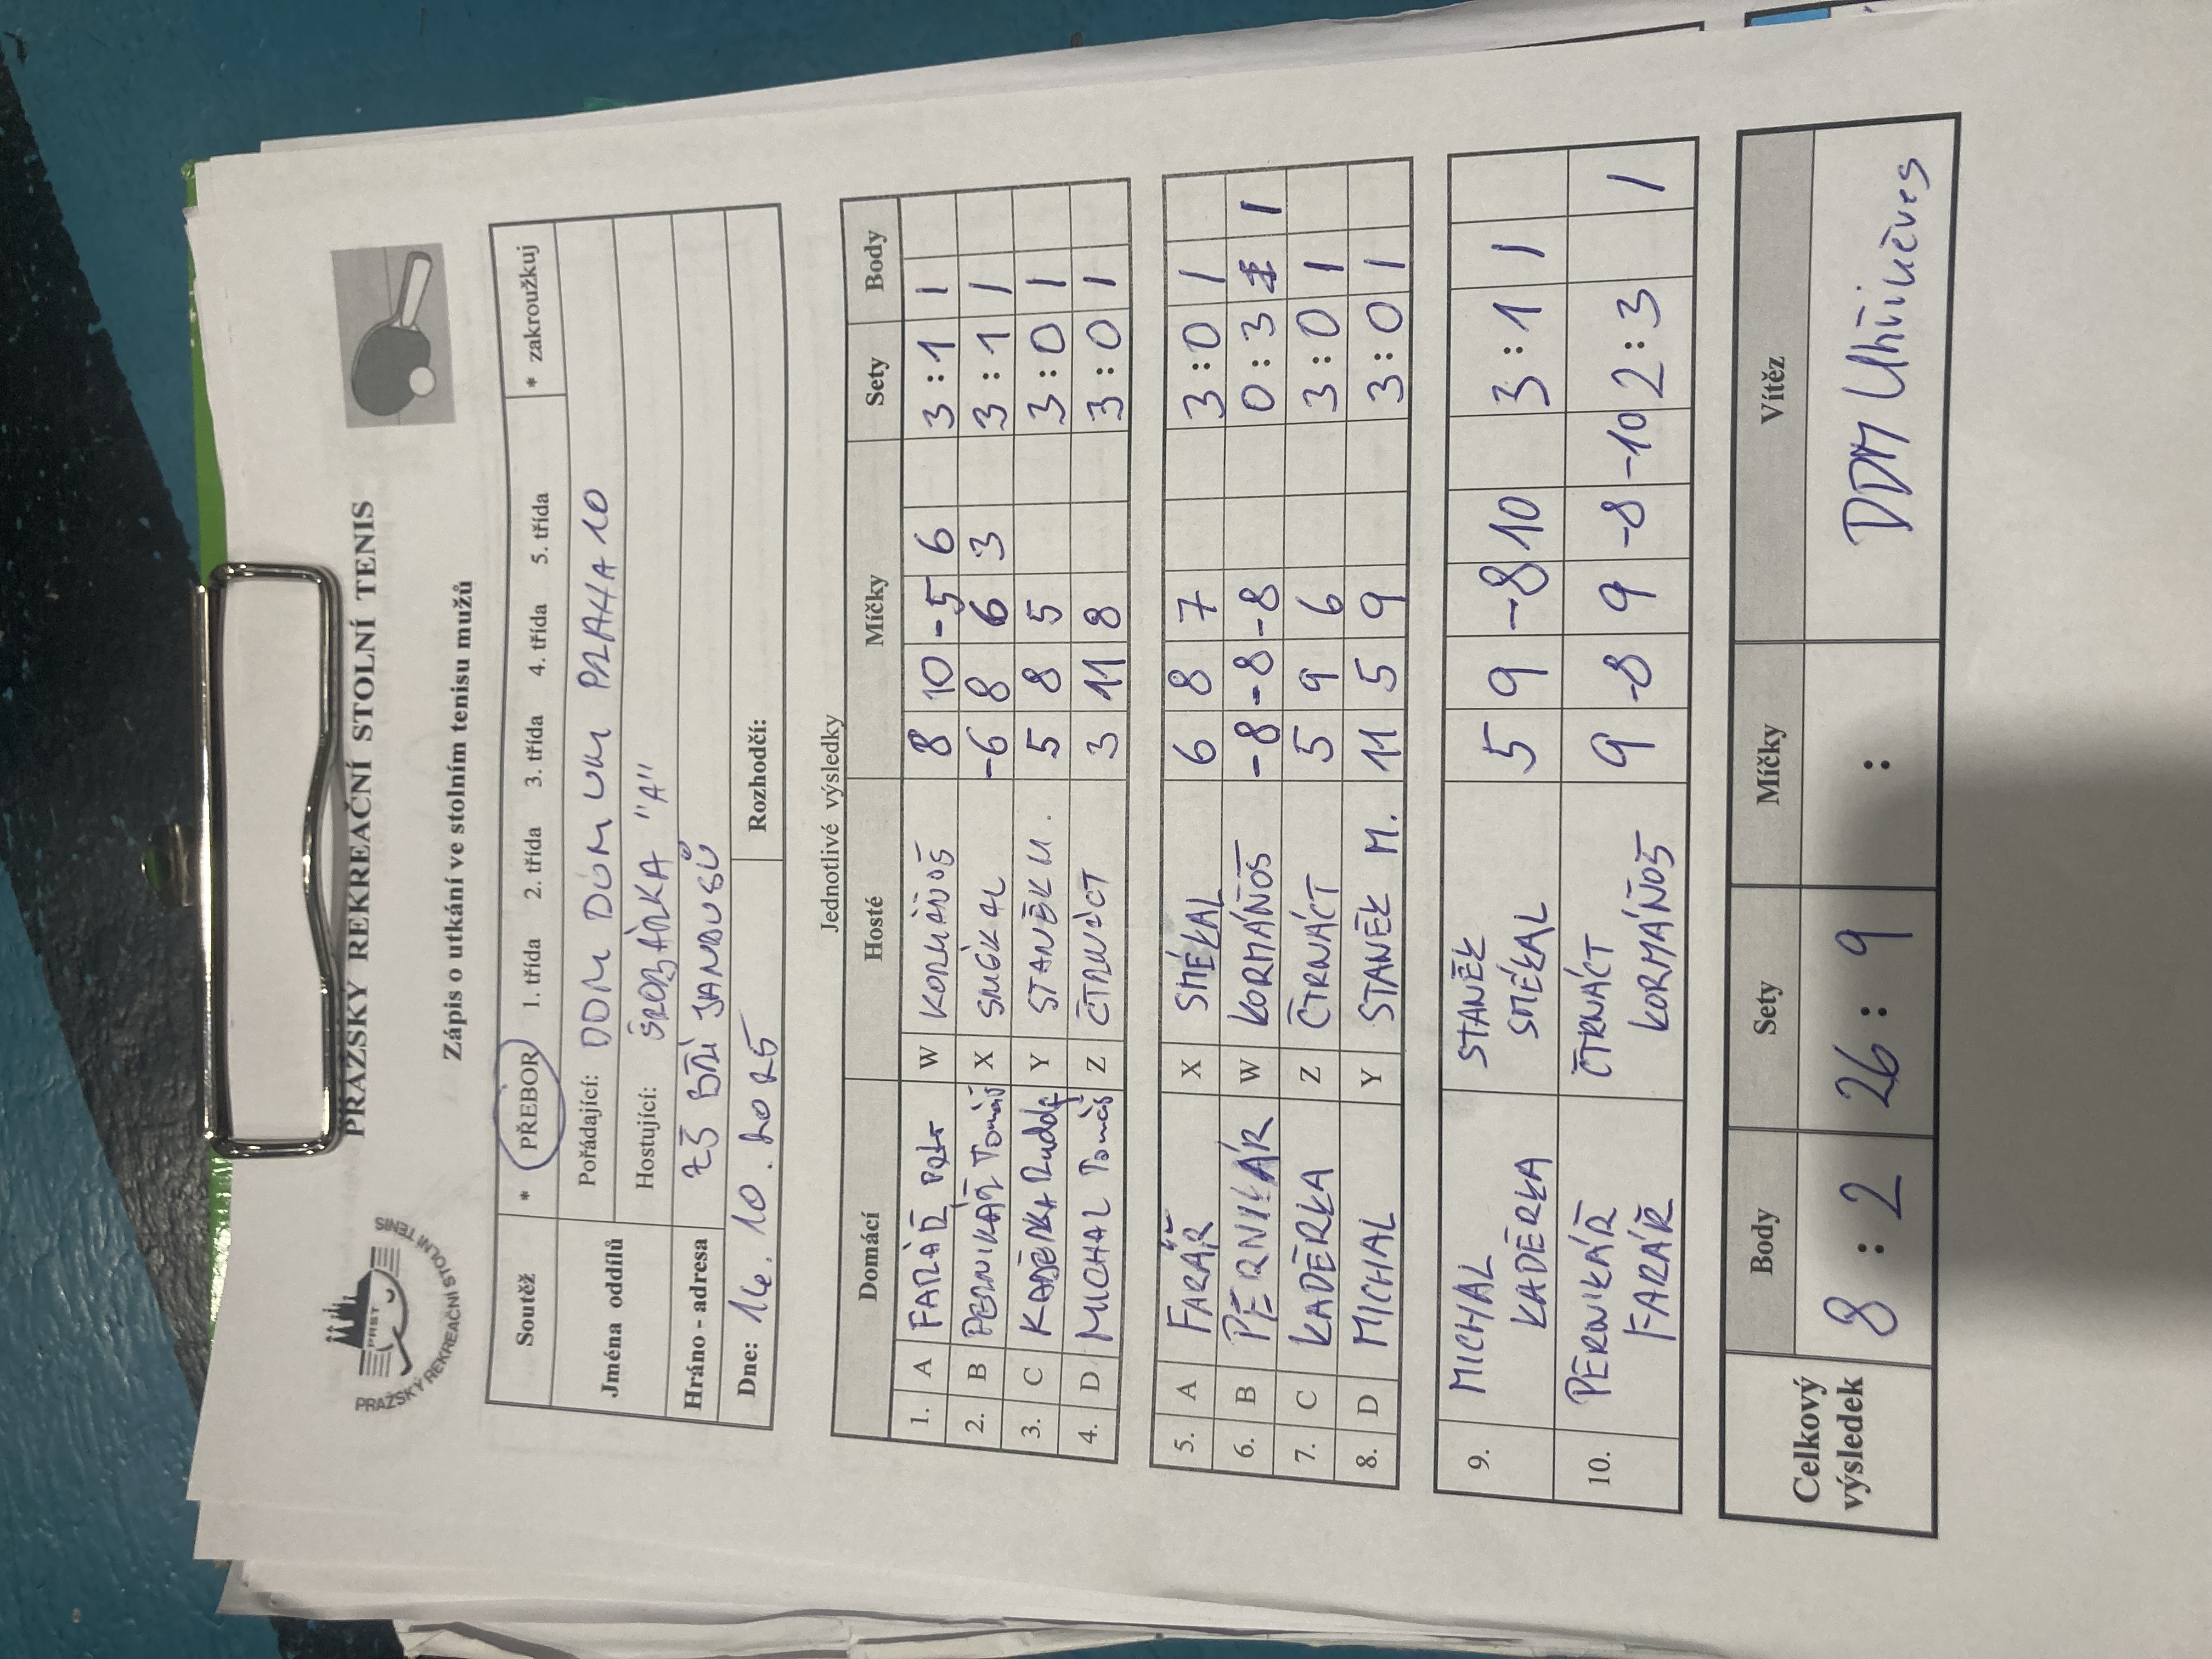 PRAŽSKÝ REKREAČNÍ STOLNÍ TENIS
PRST
PRAŽSKÝ REKREAČNÍ STOLNÍ TENIS
Zápis o utkání ve stolním tenisu mužů
Soutěž * PŘEBOR 1. třída 2. třída 3. třída 4. třída 5. třída * zakroužkuj
Jména oddílů Pořádající: DDM DŮM UM PRAHA 10
Hostující: ŠKOBÁRKA "A"
Hráno - adresa ZŠ BŘÍ JANDUSŮ
Dne: 14. 10. 2025 Rozhodčí:
Jednotlivé výsledky
Domácí Hosté Míčky Sety Body
1. A FARÁŘ Petr W KORMÁŇOŠ 8 10 -5 6 3 : 1 1
2. B PERNIKÁŘ Tomáš X SMÉKAL -6 8 6 3 3 : 1 1
3. C KADĚRKA Rudolf Y STANĚK M. 5 8 5 3 : 0 1
4. D MICHAL Tomáš Z ČTRNÁCT 3 11 8 3 : 0 1
5. A FARÁŘ X SMÉKAL 6 8 7 3 : 0 1
6. B PERNIKÁŘ W KORMÁŇOŠ -8 -8 -8 0 : 3 1
7. C KADĚRKA Z ČTRNÁCT 5 9 6 3 : 0 1
8. D MICHAL Y STANĚK M. 11 5 9 3 : 0 1
9. MICHAL STANĚK 5 9 -8 10 3 : 1 1
KADĚRKA SMÉKAL
10. PERNIKÁŘ ČTRNÁCT 9 -8 9 -8 -10 2 : 3 1
FARÁŘ KORMÁŇOŠ
Celkový výsledek Body Sety Míčky Vítěz
8 : 2 26 : 9 : DDM Uhříněves